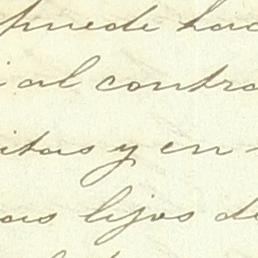 puede hac
i al contra
itas y en
as lijos de